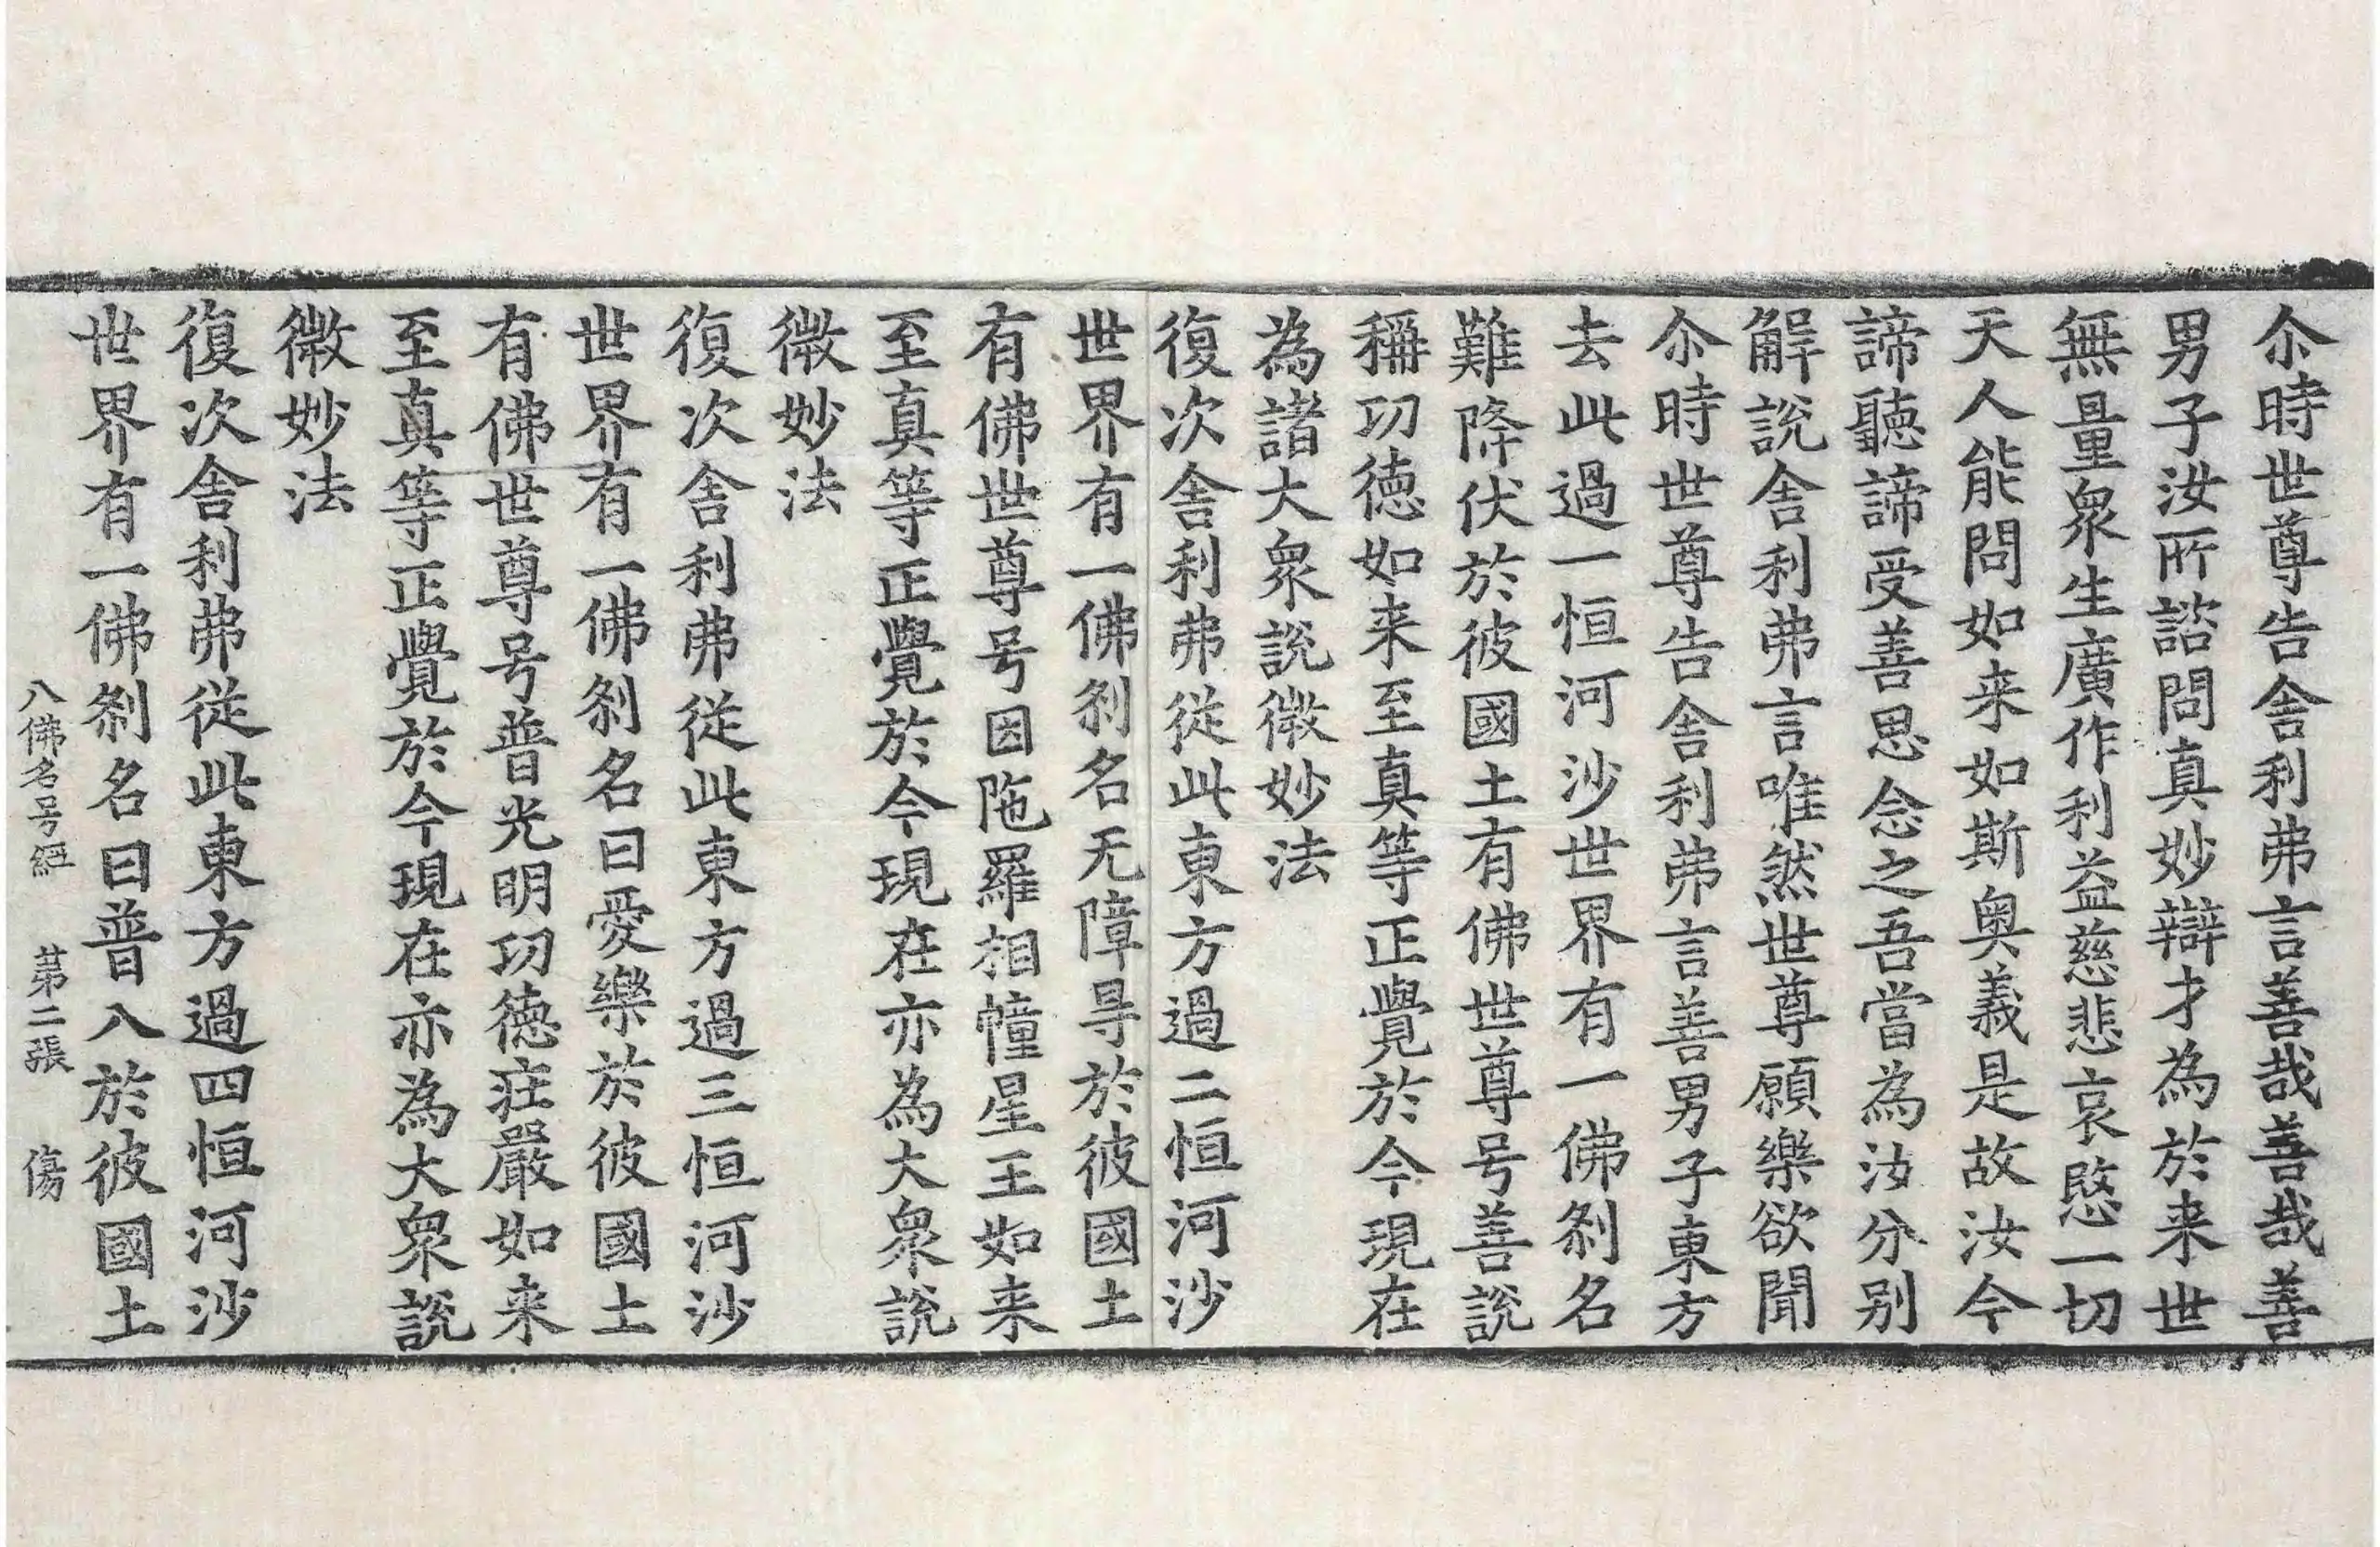 尒時世尊告舍利弗言善哉善哉善
男子汝所諮問真妙辯才為於来世
無量衆生廣作利益慈悲哀愍一切
天人能問如来如斯奥義是故汝今
諦聽諦受善思念之吾當為汝分别
解說舍利弗言唯然世尊願樂欲聞
尒時世尊告舍利弗言善男子東方
去此過一恒河沙世界有一佛刹名
難降伏於彼國土有佛世尊号善說
稱功德如来至真等正覺於今現在
為諸大衆說微妙法
復次舍利弗從此東方過二恒河沙
世界有一佛刹名无障㝵於彼國土
有佛世尊号因陁羅相幢星王如来
至真等正覺於今現在亦為大衆說
微妙法
復次舍利弗從此東方過三恒河沙
世界有一佛刹名曰愛樂於彼國土
有佛世尊号普光明功德莊嚴如来
至真等正覺於今現在亦為大衆說
微妙法
復次舍利弗從此東方過四恒河沙
世界有一佛刹名曰普入於彼國土
八佛名号經 苐二張 傷